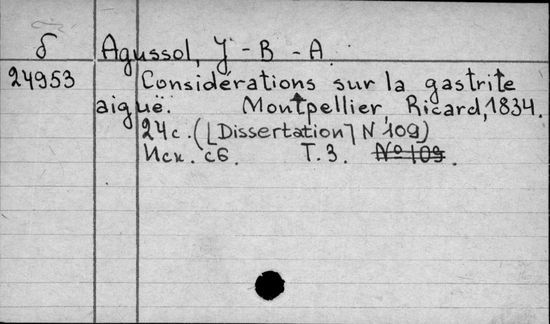 δ Agussol, J - B - A.
24953 Considérations sur la gastrite
aiguë. Montpellier, Ricard, 1834.
24c. ([Dissertation] N 109)
Иск. сб. Т.3. №109.